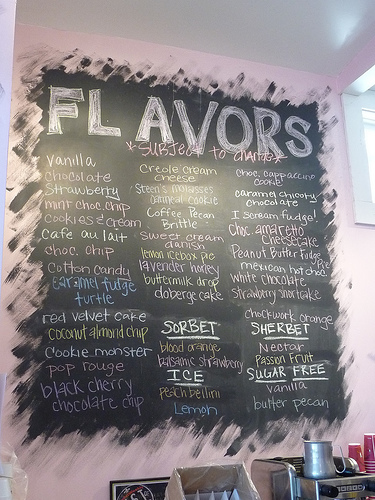 FLAVORS
*SUBJECT to change*
vanilla
chocolate
Strawberry
mint choc.chip
cookies & cream
cafe au lait
choc. chip
cotton candy
caramel fudge
turtle
red velvet cake
coconut almond chip
Cookie monster
pop rouge
black cherry
chocolate chip
Creole cream
cheese
Steen's molasses
oatmeal cookie
Coffee Pecan
Brittle
sweet cream
danish
lemon icebox pie
lavender honey
buttermilk drop
doberge cake
SORBET
blood orange
balsamic strawberry
ICE
peach bellini
Lemon
choc. cappuccino
cookie
caramel chicory
chocolate
I scream fudge!
choc amaretto
cheesecake
Peanut Butter Fudge
Pie
mexican hot choc.
white chocolate
Strawberry shortcake
chockwork orange
SHERBET
Nectar
Passion Fruit
SUGAR FREE
vanilla
butter pecan